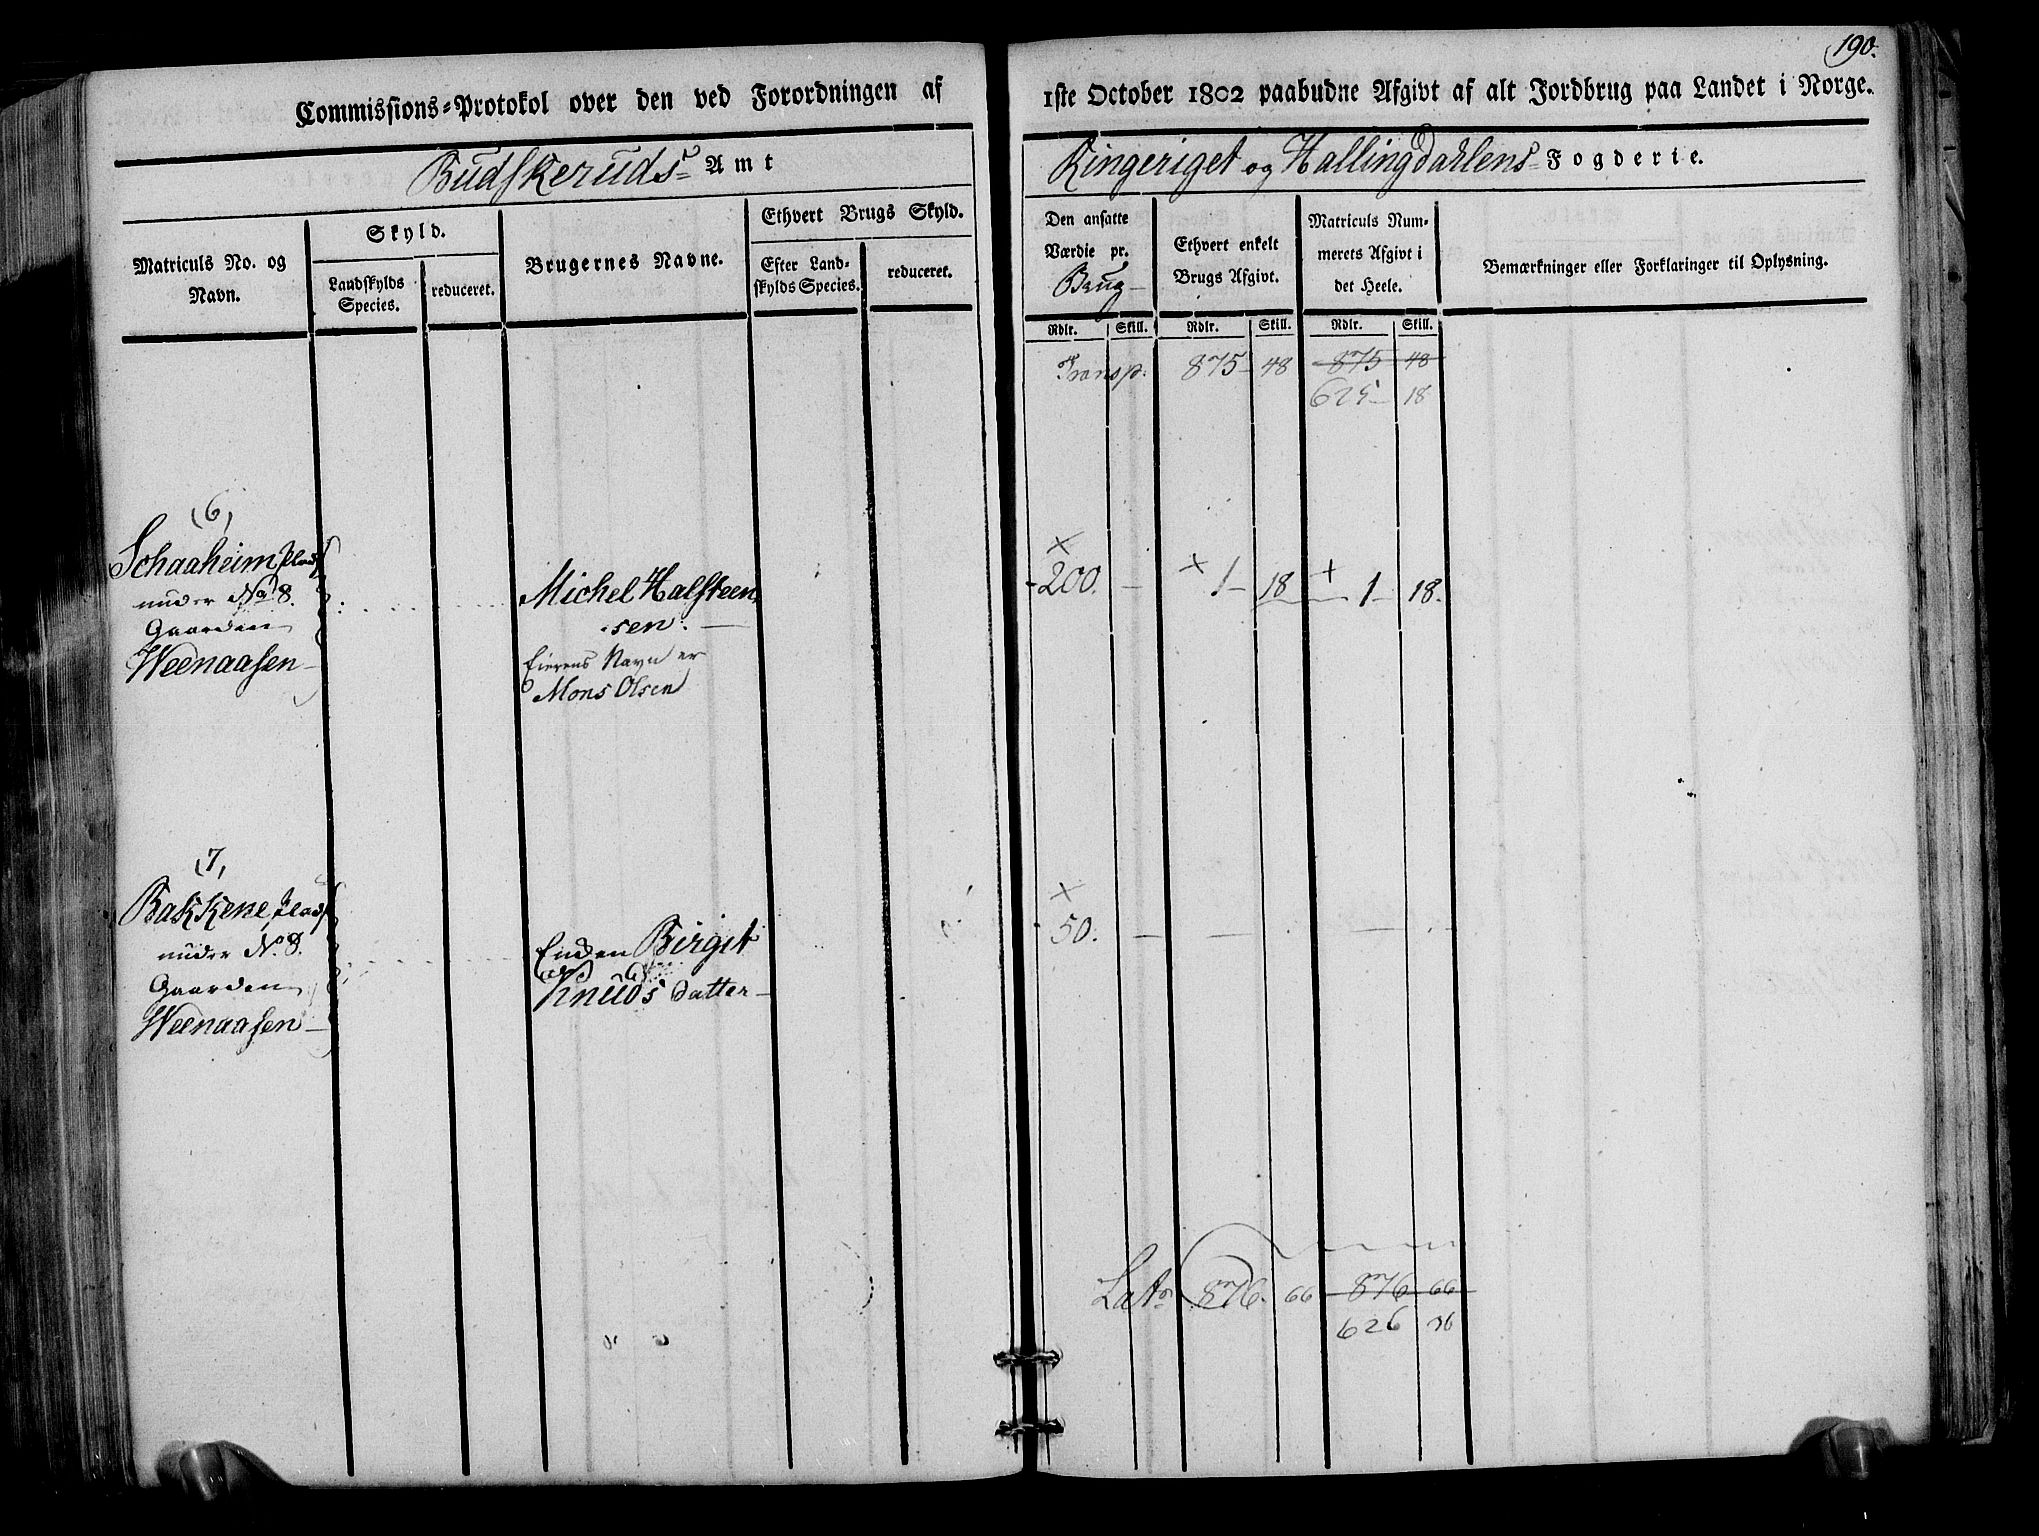 190.
Commissions-Protokol over den ved Forordningen af 1ste October 1802 paabudne Afgivt af alt Jordbrug paa Landet i Norge.
Budskeruds Amt
Ringeriget og Hallingdahlens Fogderie.
Matriculs No. og Navn.
Skyld.
Landskylds Species.
reduceret.
Brugernes Navne.
Ethvert Brugs Skyld.
Efter Landskylds Species.
reduceret.
Den ansatte Værdie pr. Brug
Ethvert enkelt Brugs Afgivt.
Matriculs Nummerets Afgivt i det Heele.
Bemærkninger eller Forklaringer til Oplysning.
Rdlr. Skill. Rdlr. Skill. Rdlr. Skill.
Transp: 875 48 875 48
625 18
(6)
Schaaheim, Plads
under No 8.
Gaarden
Weenaasen
Michel Halsteen
sen.
Eierens Navn er
Mons Olsen
200. 1 18 1 18.
(7)
Bakkene, Plads
under No. 8.
Gaarden
Weenaasen
Enden Birget
Knuds datter
50.
Lats 876. 66 876 66
626 36